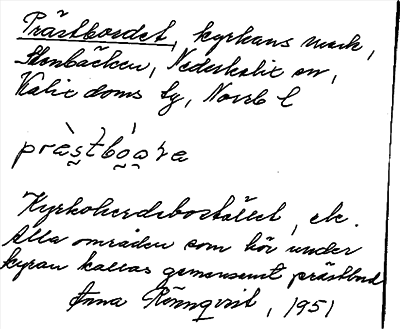 Prästbordet, kyrkans mark,
Stenbäcken, Nederkalix sn,
Kalix doms tg, Norrb l
præstboara
Kyrkoherdebostället, etc.
Alla områden som hör under
kyran kallas gemensamt prästbord
Anna Rönnqvist, 1951